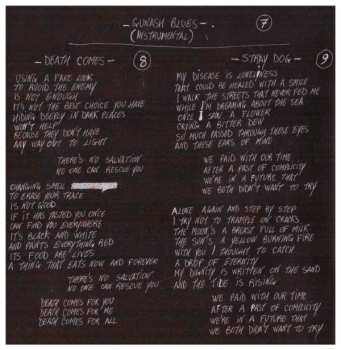 - GULLASH BLUES -
(INSTRUMENTAL)
7
- DEATH COMES -
8
USING A FAKE LOOK
TO AVOID THE ENEMY
IS NOT ENOUGH
IT'S NOT THE BEST CHOICE YOU HAVE
HIDING DEEPLY IN DARK PLACES
WON'T HELP
BECAUSE THEY DON'T HAVE
ANY WAY OUT TO LIGHT
THERE'S NO SALVATION
NO ONE CAN RESCUE YOU
CHANGING SMELL
TO ERASE YOUR TRACE
IS NOT GOOD
IF IT HAS TASTED YOU ONCE
CAN FIND YOU EVERYWHERE
IT'S BLACK AND WHITE
AND PAINTS EVERYTHING RED
ITS FOOD ARE LIVES
A THING THAT EATS NOW AND FOREVER
THERE'S NO SALVATION
NO ONE CAN RESCUE YOU
DEATH COMES FOR YOU
DEATH COMES FOR ME
DEATH COMES FOR ALL
- STRAY DOG -
9
MY DISEASE IS LONELINESS
THAT COULD BE HEALED WITH A SMILE
I WALK THE STREETS THAT NEVER FED ME
WHILE I'M DREAMING ABOUT THE SEA
ONCE I SAW A FLOWER
CRYING A BITTER DEW
SO MUCH PASSED THROUGH THESE EYES
AND THESE EARS OF MINE
WE PAID WITH OUR TIME
AFTER A PAST OF COMPLICITY
WE'RE IN A FUTURE THAT
WE BOTH DIDN'T WANT TO TRY
ALONE AGAIN AND STEP BY STEP
I TRY NOT TO TRAMPLE ON CRACKS
THE MOON'S A BREAST FULL OF MILK
THE SUN'S A YELLOW BURNING FIRE
WITH YOU I THOUGHT TO CATCH
A DROP OF ETERNITY
MY DIGNITY IS WRITTEN ON THE SAND
AND THE TIDE IS RISING
WE PAID WITH OUR TIME
AFTER A PAST OF COMPLICITY
WE'RE IN A FUTURE THAT
WE BOTH DIDN'T WANT TO TRY